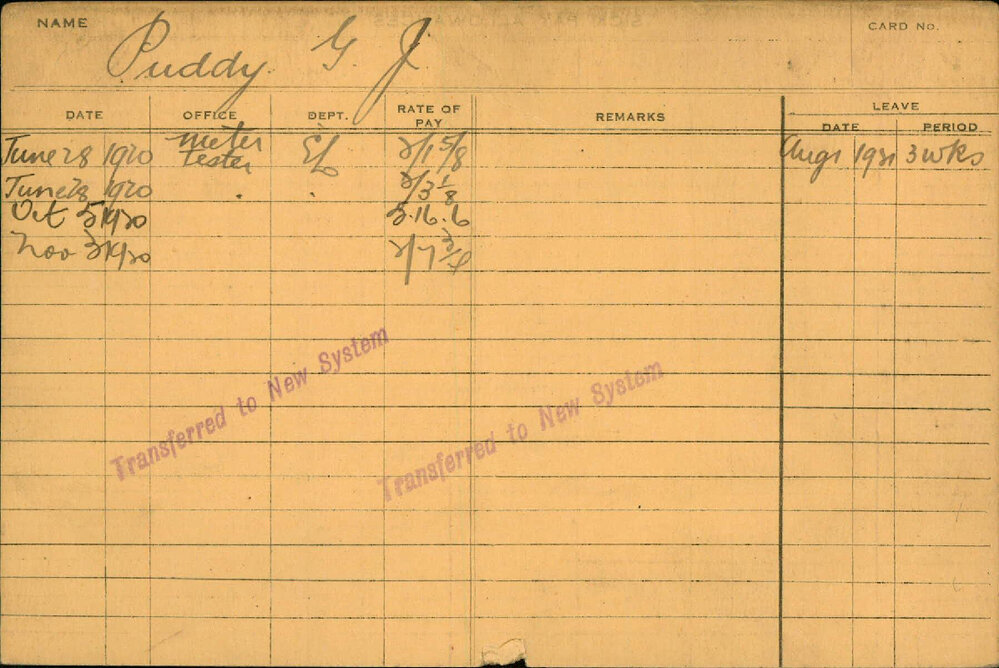 NAME
CARD NO.
Puddy. G. J.
DATE OFFICE DEPT. RATE OF PAY REMARKS LEAVE
DATE PERIOD
June 28 1920 meter tester 2/1 5/8 Aug 1 1921 3 wks
June 28 1920 . . 2/3 1/8
Oct 5 1920 5.16.6
Nov 3 1920 2/7 3/4
Transferred to New System
Transferred to New System